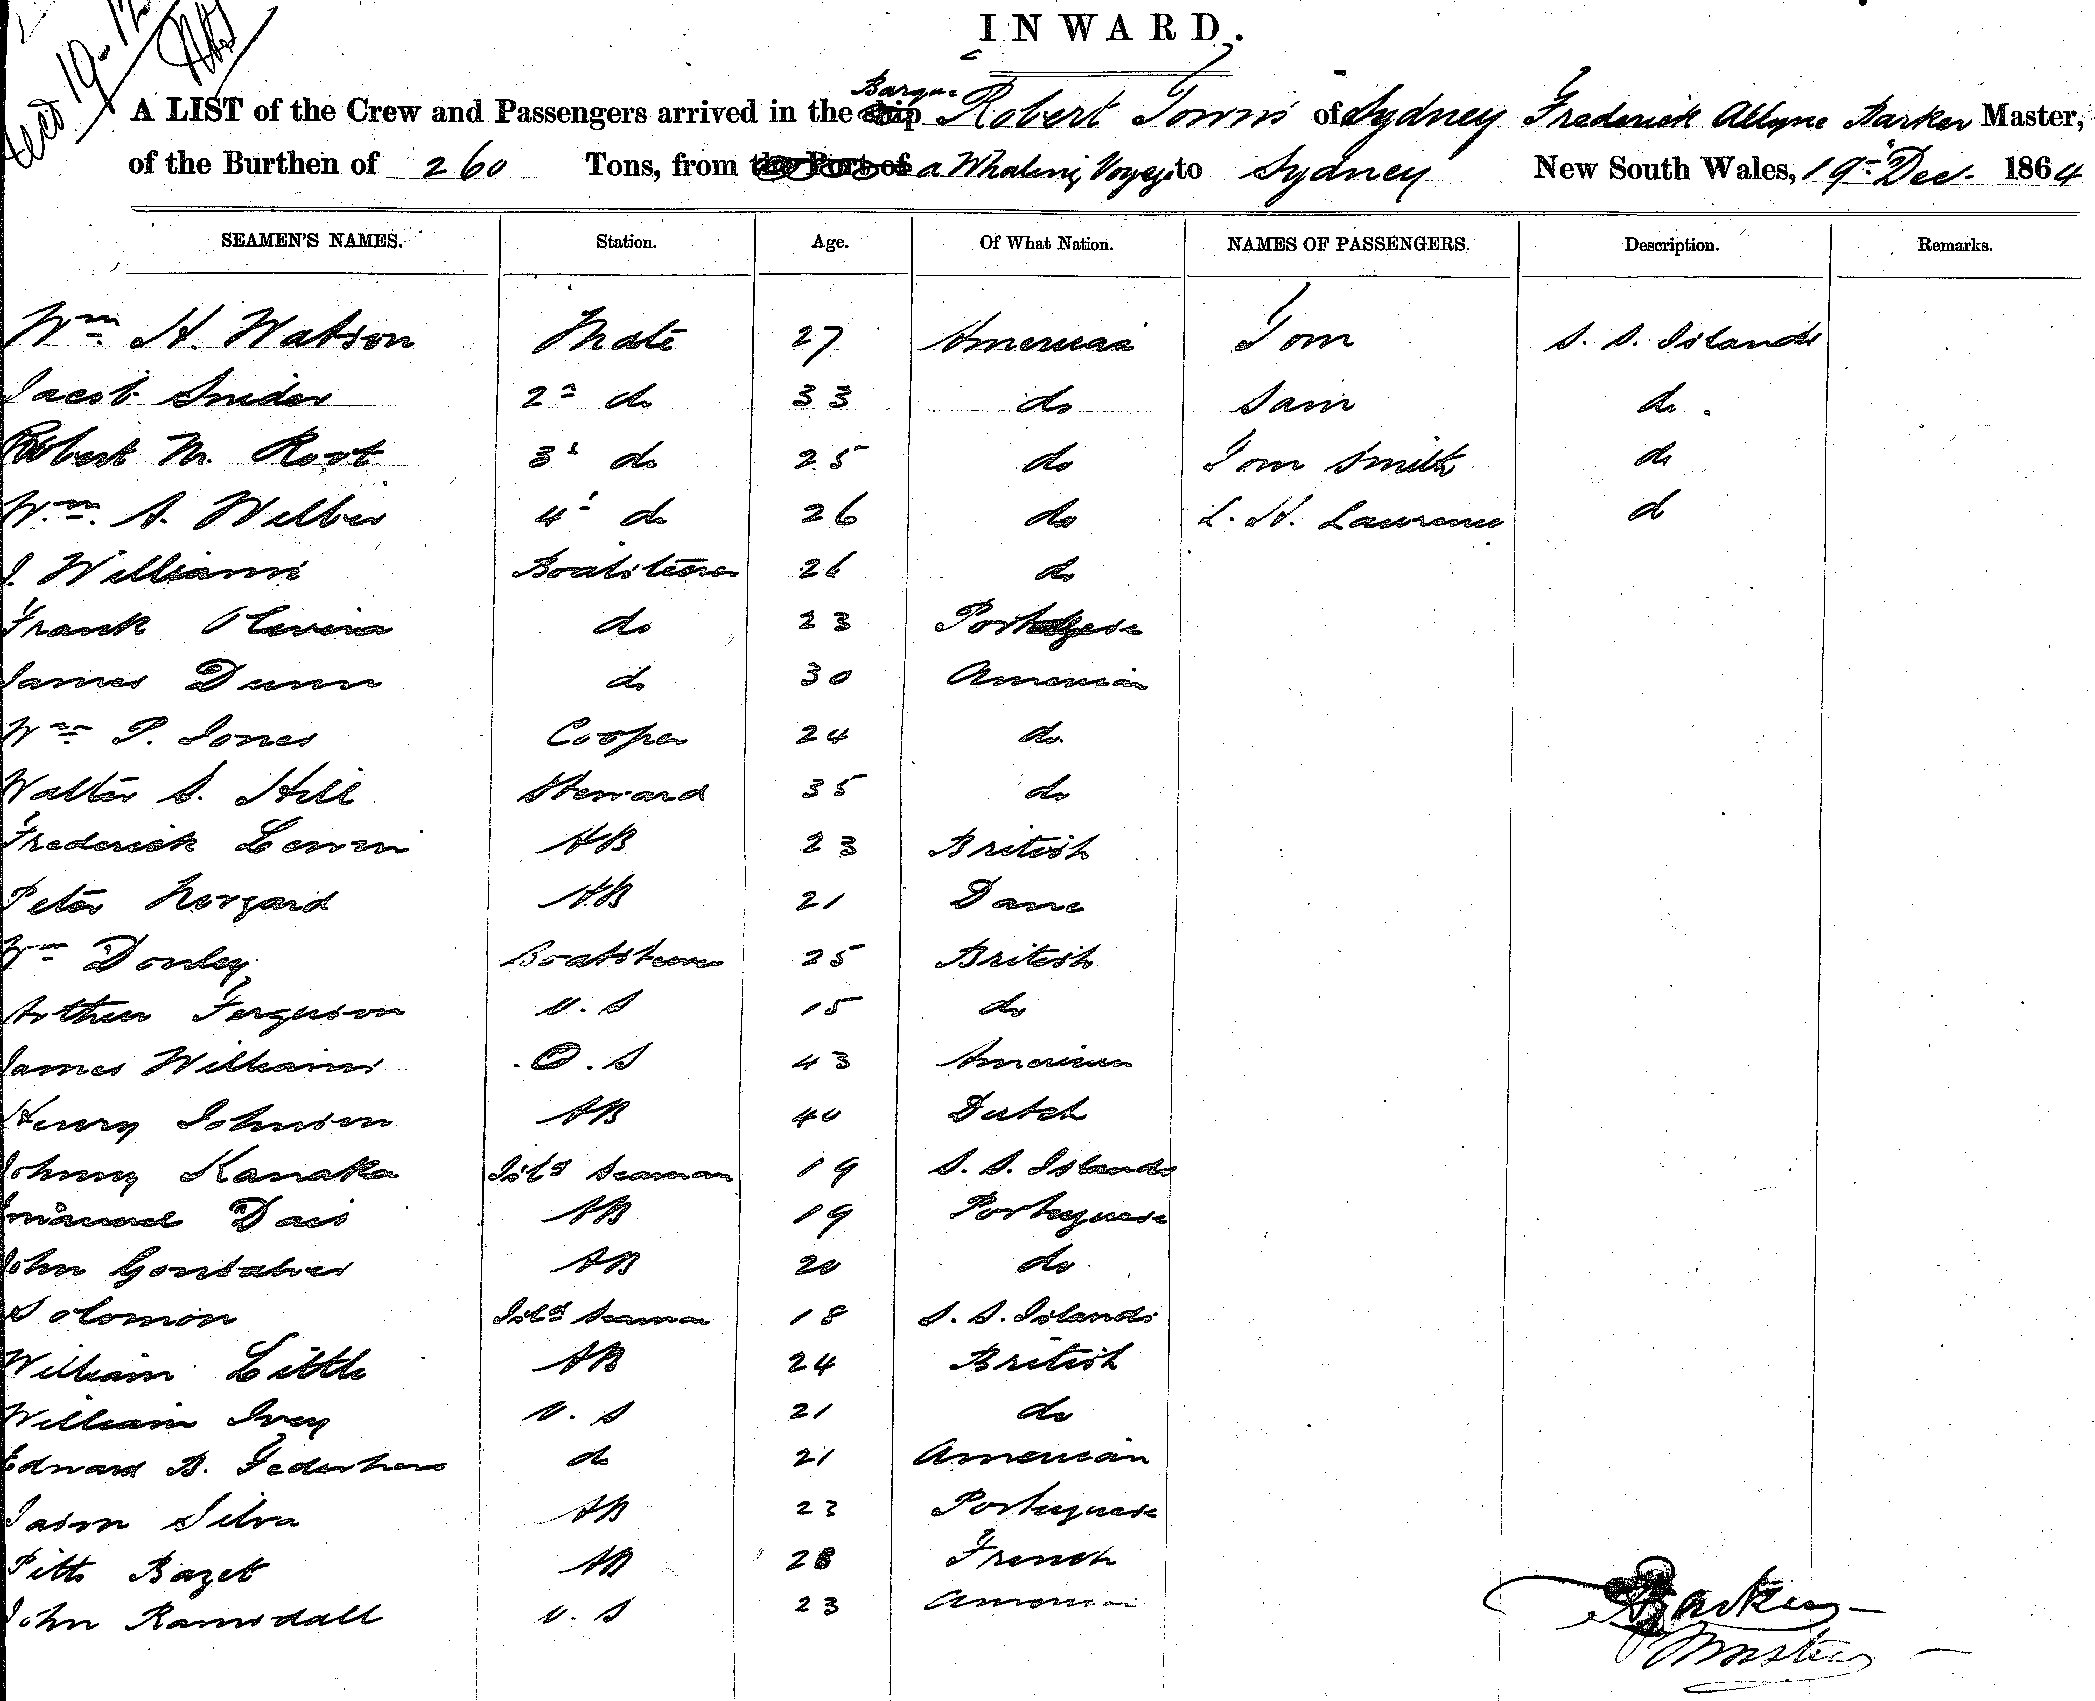 INWARD.
A LIST of the Crew and Passengers arrived in the Barque Robert Towns of Sydney Frederick Allyne Parker Master,
of the Burthen of 260 Tons, from a Whaling Voyage to Sydney New South Wales, 19th Dec. 1864
SEAMEN'S NAMES. Station. Age. Of What Nation. NAMES OF PASSENGERS. Description. Remarks.
Wm. H. Watson Mate 27 American Tom S. S. Islands
Jacob Snider 2d do 33 do Sam do.
Robert M. Root 3d do 25 do Tom Smith do
Wm. S. Wilber 4th do 26 do L. H. Lawrence d
J. Williams Boatsteerer 26 do
Frank Oleveira do 23 Portugese
James Dunn do 30 American
Wm P. Jones Cooper 24 do.
Walter S. Hill Steward 35 do
Frederick Lewin AB 23 British
Peter Norgard AB 21 Dane
Wm Donley Boatsteerer 25 British
Arthur Ferguson O.S 15 do
James Williams O.S 43 American
Henry Johnson AB 40 Dutch
Johnny Kanaka Isld Seaman 19 S. S. Islands
Emanuel Dais AB 19 Portuguese
John Gonsalves AB 20 do
Solomon Isld Seaman 18 S. S. Islands
William Little AB 24 British
William Ivey O.S 21 do
Edward B. do 21 American
Jason Silva AB 23 Portuguese
Pitts Bazet AB 28 French
John Ramsdall O.S 23 American
Parker
Master